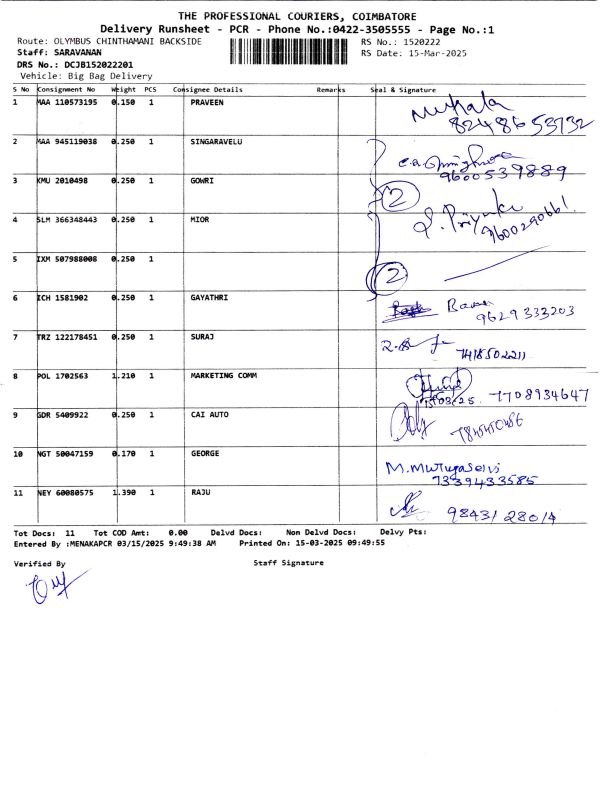 THE PROFESSIONAL COURIERS, COIMBATORE
Delivery Runsheet - PCR - Phone No.:0422-3505555 - Page No.:1
Route: OLYMBUS CHINTHAMANI BACKSIDE RS No.: 1520222
Staff: SARAVANAN RS Date: 15-Mar-2025
DRS No.: DCJB152022201
Vehicle: Big Bag Delivery
S No Consignment No Weight PCS Consignee Details Remarks Seal & Signature
1 MAA 110573195 0.150 1 PRAVEEN
8248653732
2 MAA 945119038 0.250 1 SINGARAVELU
9600539889
3 KMU 2010498 0.250 1 GOWRI
2
4 SLM 366348443 0.250 1 MIOR S. Priyanka
9600290661
5 IXM 507988008 0.250 1
2
6 ICH 1581902 0.250 1 GAYATHRI
9629333203
7 TRZ 122178451 0.250 1 SURAJ
7418502211
8 POL 1702563 1.210 1 MARKETING COMM
15/03/25. 7708934647
9 GDR 5409922 0.250 1 CAI AUTO
10 NGT 50047159 0.170 1 GEORGE M. Murugaselvi
7339433585
11 NEY 60080575 1.390 1 RAJU
9843128014
Tot Docs: 11 Tot COD Amt: 0.00 Delvd Docs: Non Delvd Docs: Delvy Pts:
Entered By :MENAKAPCR 03/15/2025 9:49:38 AM Printed On: 15-03-2025 09:49:55
Verified By Staff Signature